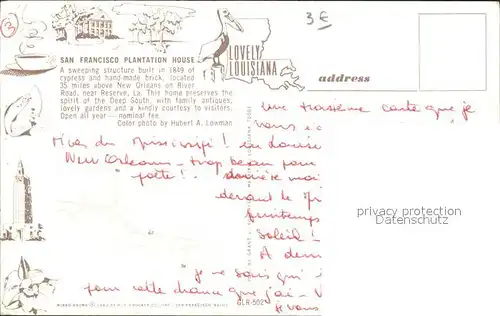 3
3€
SAN FRANCISCO PLANTATION HOUSE
A sweeping structure built in 1849 of
cypress and hand-made brick, located
35 miles above New Orleans on River
Road, near Reserve, La. This home preserves the
spirit of the Deep South, with family antiques,
lovely gardens and a kindly courtesy to visitors.
Open all year — nominal fee.
Color photo by Hubert A. Lowman
LOVELY
LOUISIANA
address
Une troisième carte que je
vous
Rives du Mississipi! en Louisi
New Orleans - trop beau pour
derrière moi
devant le
printemps
Soleil!
A dem
je ne sais qui
pour cette chance que j'ai - V
je vous
privacy protection
GLR-502